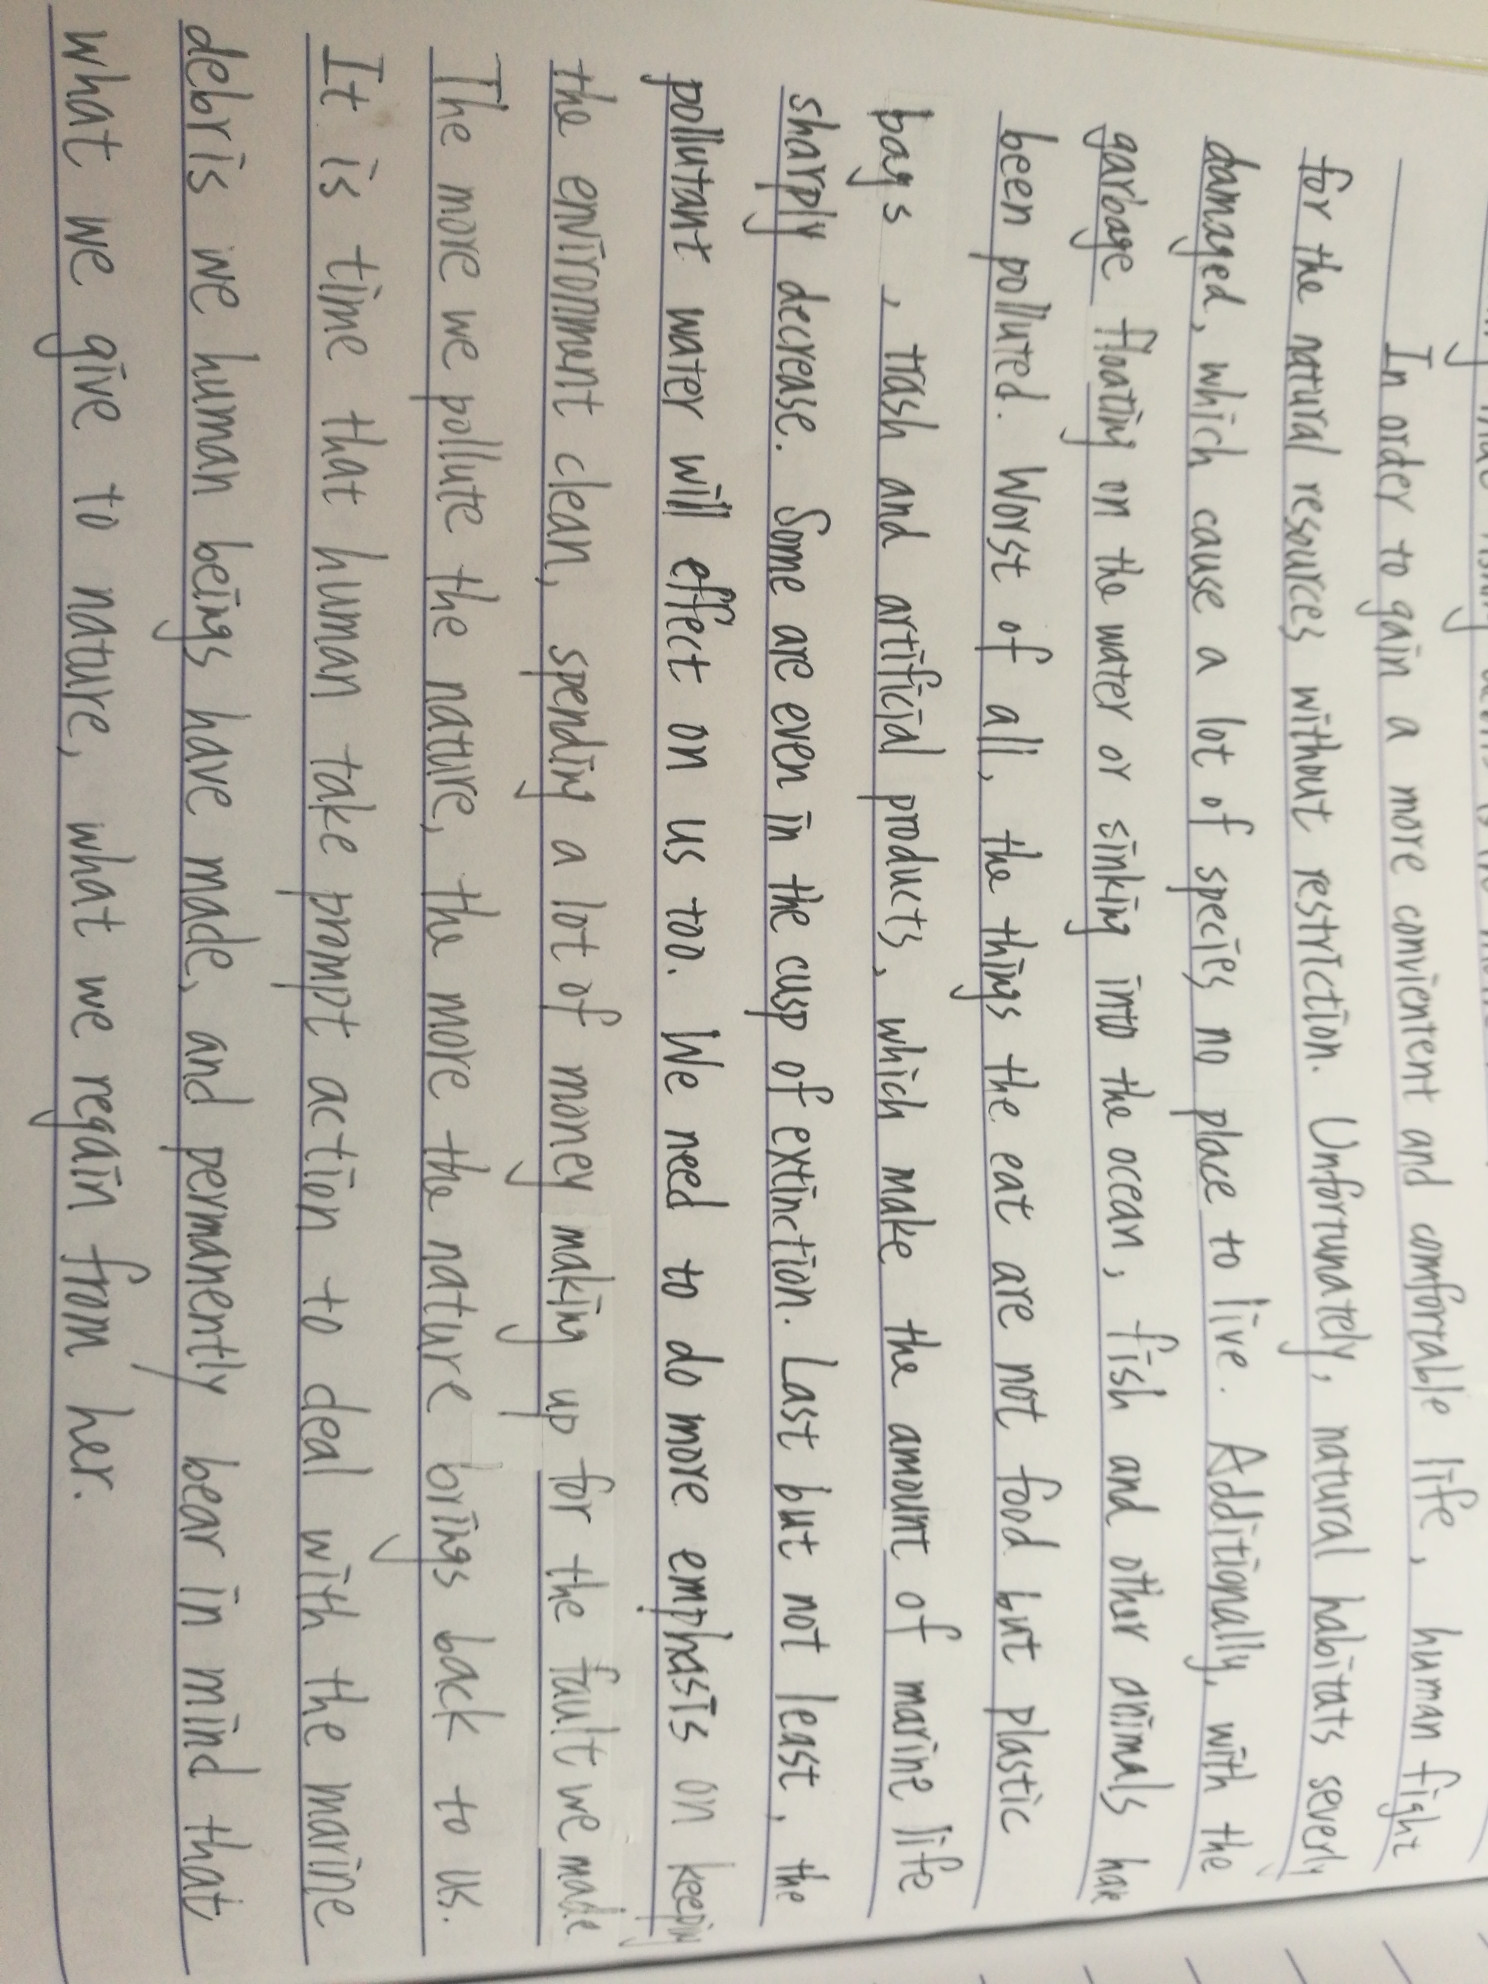 In order to gain a more convientent and comfortable life, human fight
for the natural resources without restriction. Unfortunately, natural habitats severly
damaged, which cause a lot of species no place to live. Additionally, with the
garbage floating on the water or sinking into the ocean, fish and other animals have
been polluted. Worst of all, the things the eat are not food but plastic
bags, trash and artificial products, which make the amount of marine life
sharply decrease. Some are even in the cusp of extinction. Last but not least, the
pollutant water will effect on us too. We need to do more emphasis on keeping
the environment clean, spending a lot of money making up for the fault we made
The more we pollute the nature, the more the nature brings back to us.
It is time that human take prompt action to deal with the marine
debris we human beings have made, and permanently bear in mind that
what we give to nature, what we regain from her.